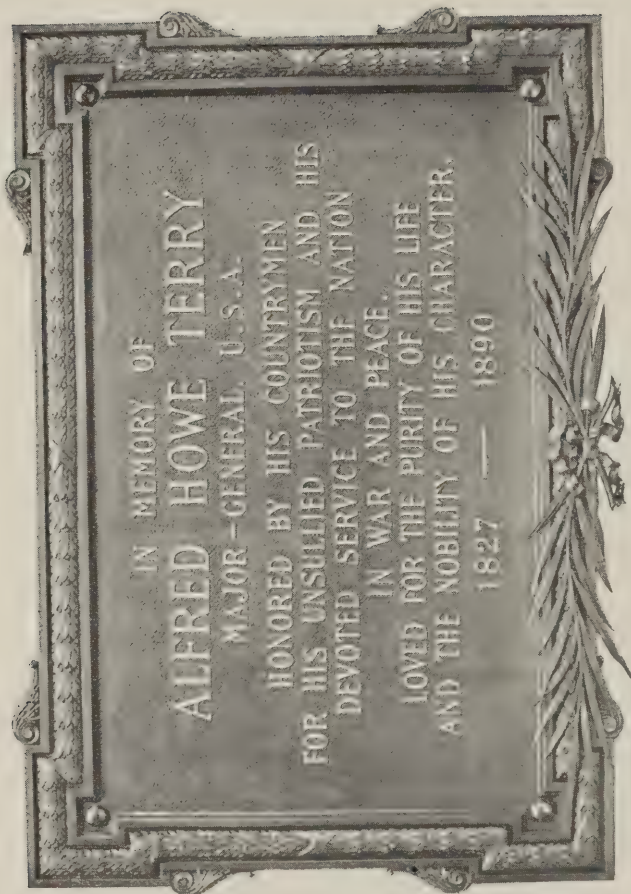 IN MEMORY OF
ALFRED HOWE TERRY
MAJOR-GENERAL U.S.A.
HONORED BY HIS COUNTRYMEN
FOR HIS UNSULLIED PATRIOTISM AND HIS
DEVOTED SERVICE TO THE NATION
IN WAR AND PEACE.
LOVED FOR THE PURITY OF HIS LIFE
AND THE NOBILITY OF HIS CHARACTER.
1827 — 1890